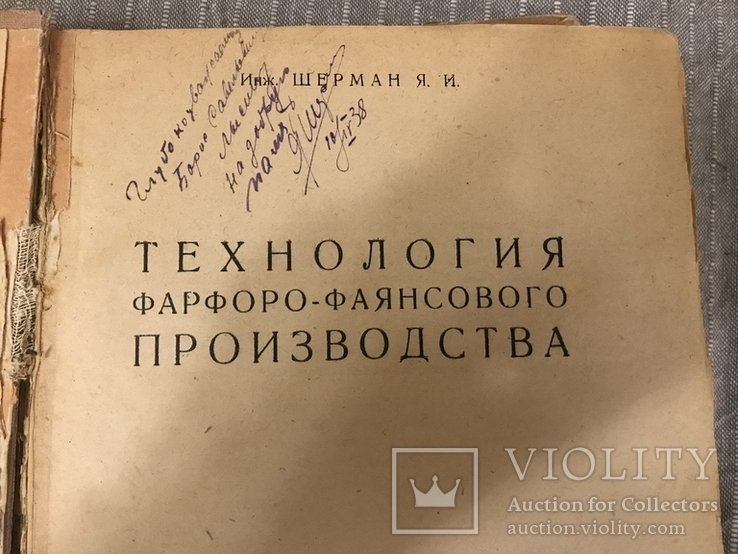 Инж. ШЕРМАН Я. И.
Глубокоуважаемому
Борис
на добрую
память
38
ТЕХНОЛОГИЯ
ФАРФОРО-ФАЯНСОВОГО
ПРОИЗВОДСТВА
VIOLITY
Auction for Collectors
auction.violity.com